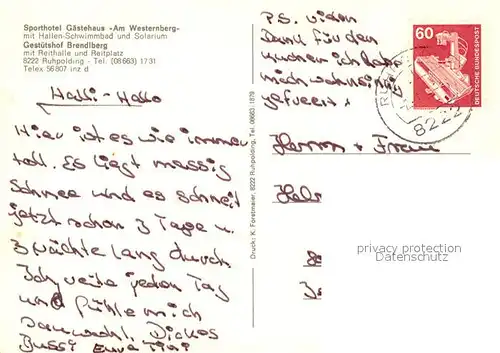 Sporthotel Gästehaus »Am Westernberg«
mit Hallen-Schwimmbad und Solarium
Gestütshof Brendlberg
mit Reithalle und Reitplatz
8222 Ruhpolding - Tel. (08663) 1731
Telex 56807 inz d
Halli-Hallo
Hier ist es wie immer
toll. Es liegt massig
Schnee und es schneit
jetzt schon 3 Tage u.
3 Nächte lang durch
Ich reite jeden Tag
und fühle mich
sauwohl. Dickes
Bussi Eure Tini
Druck: K. Forstmaier, 8222 Ruhpolding, Tel. 08663-1878
PS. vielen
Dank für den
Kuchen ich habe
mich wahnsinnig
gefreut!
60
DEUTSCHE BUNDESPOST
8222
Herrn + Frau
privacy protection
Datenschutz